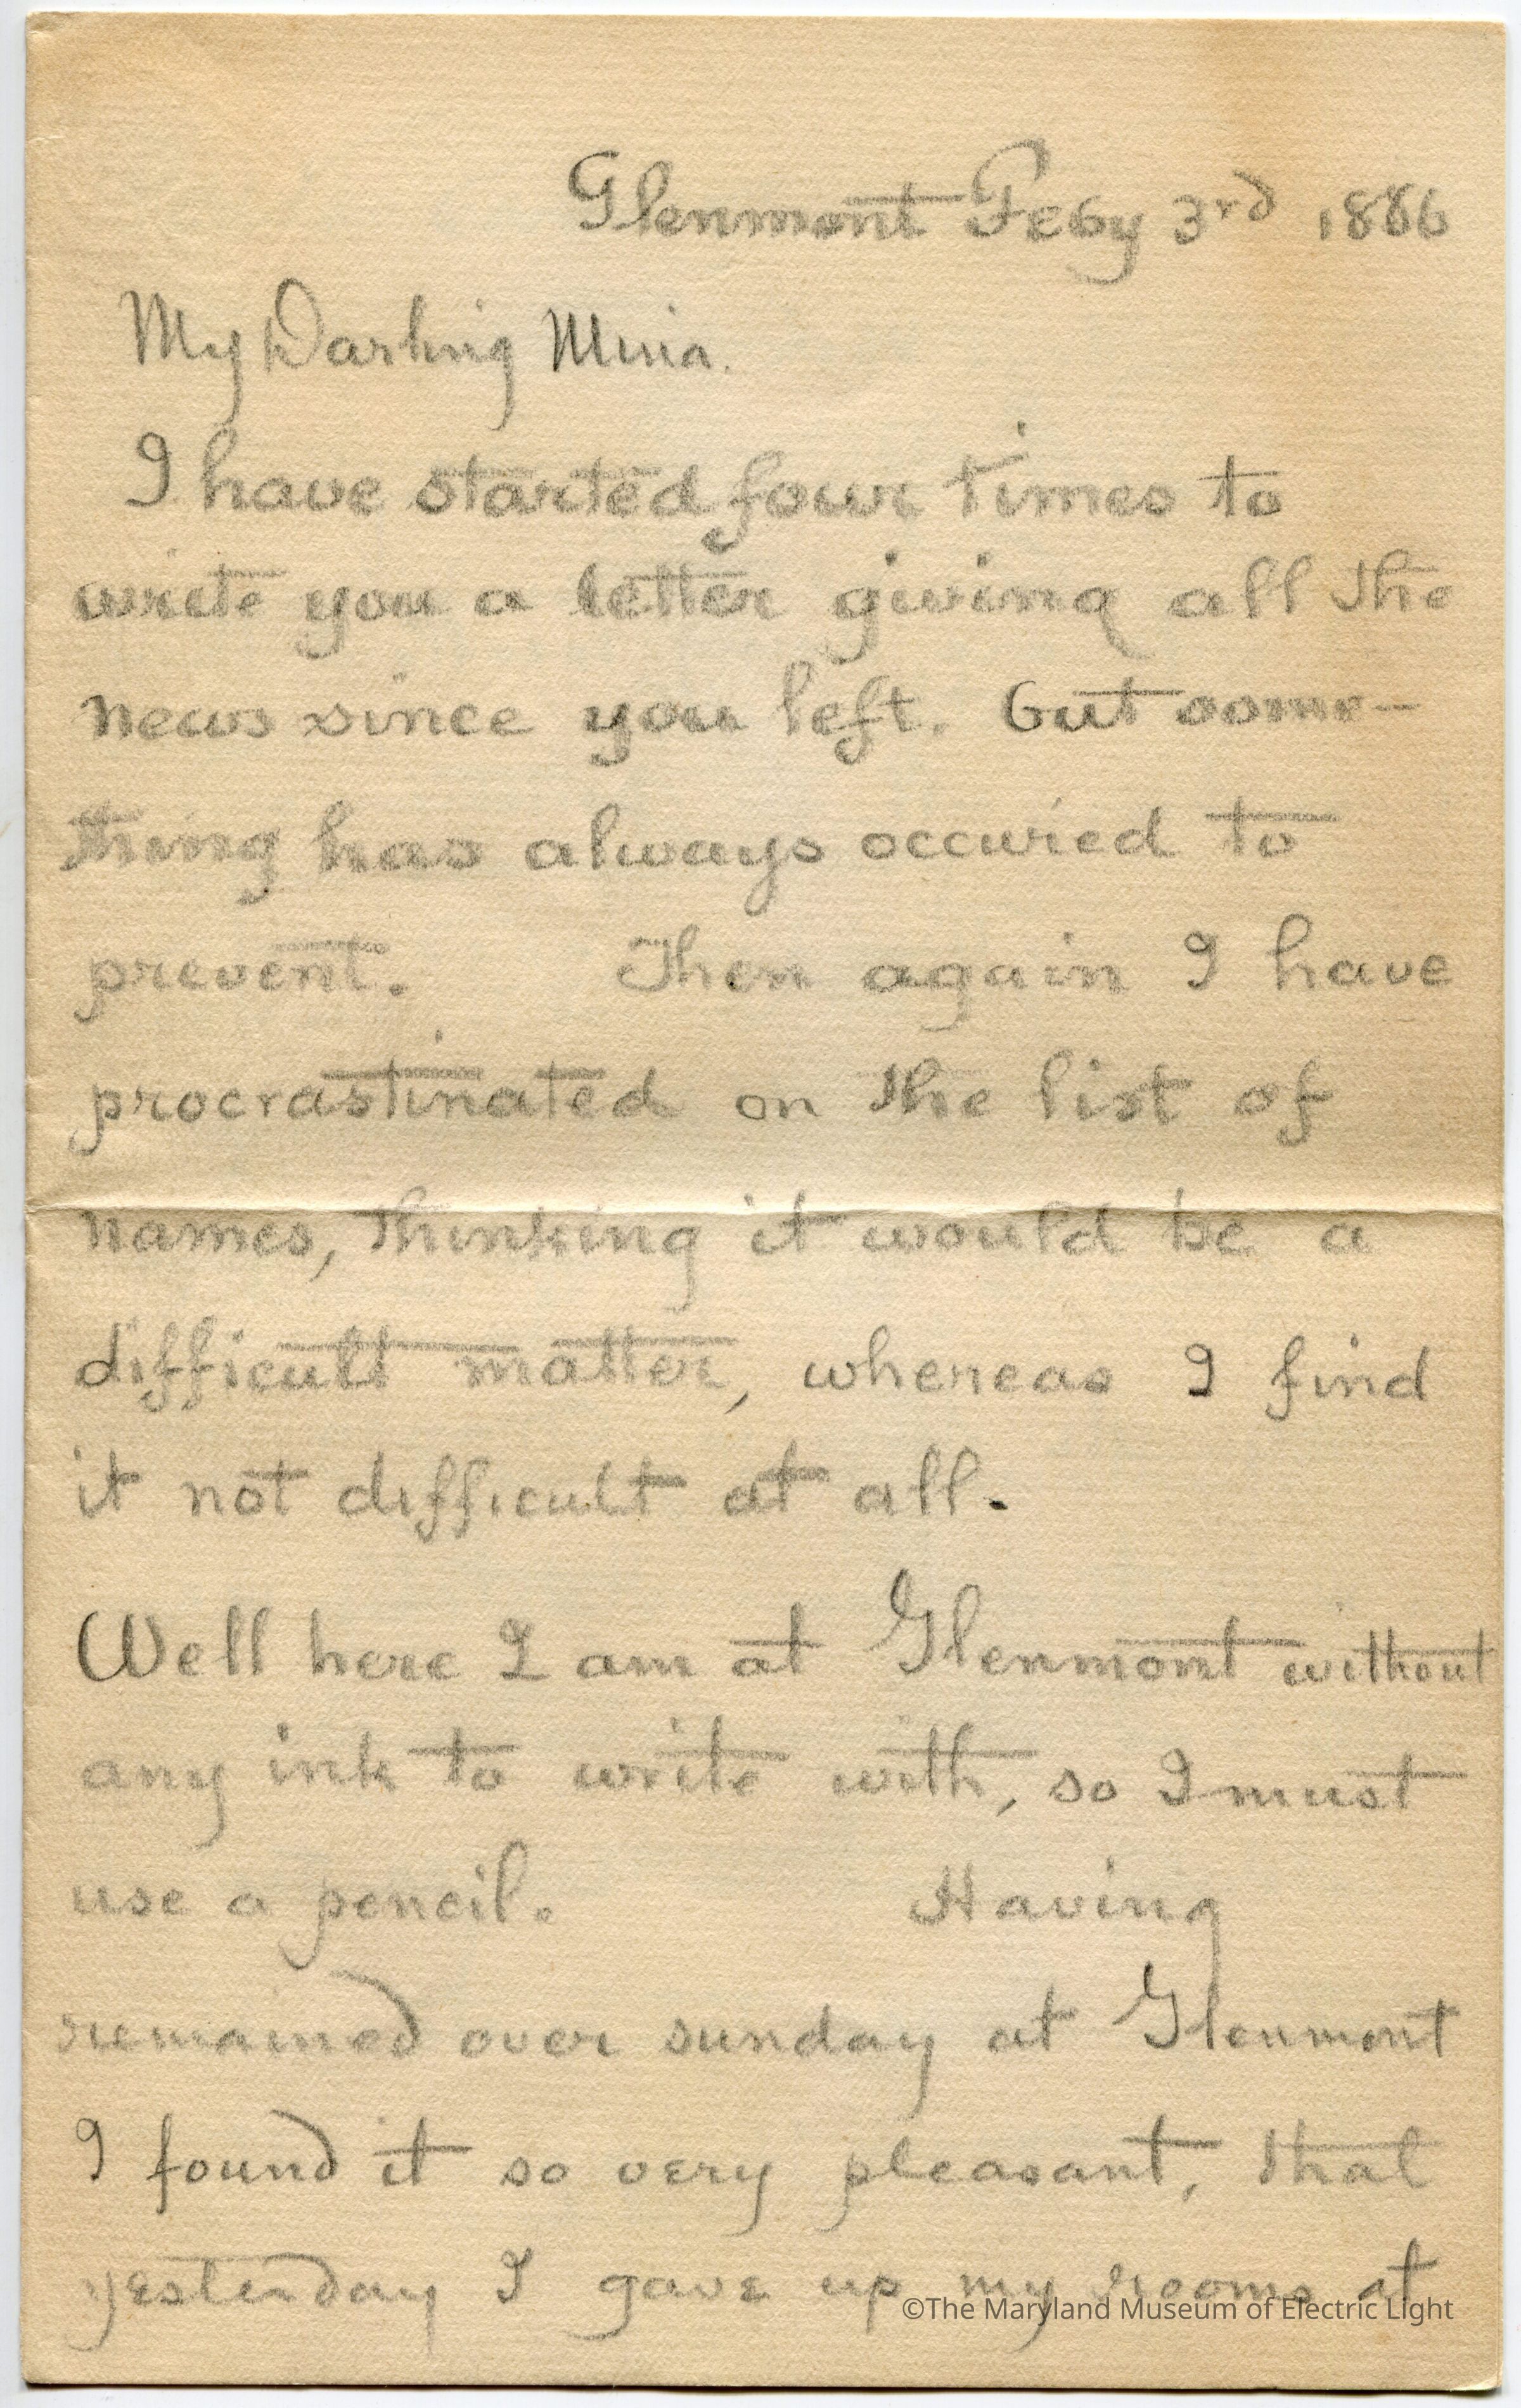 Glenmont Feby 3rd 1886
My Darling Mina.
I have started four times to
write you a letter giving all the
news since you left. but some-
thing has always occured to
prevent. Then again I have
procrastinated on the list of
names, thinking it would be a
difficult matter, whereas I find
it not difficult at all.
Well here I am at Glenmont without
any ink to write with, so I must
use a pencil. Having
remained over sunday at Glenmont
I found it so very pleasant, that
yesterday I gave up my rooms at
©The Maryland Museum of Electric Light